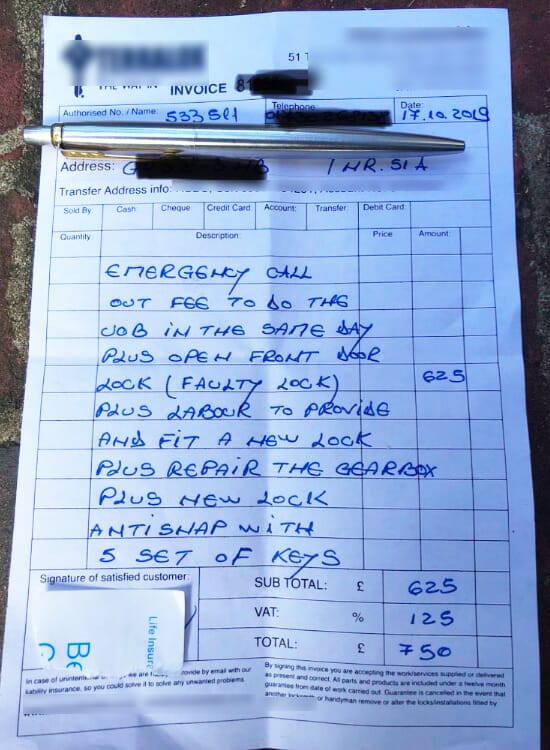 51
INVOICE 81
Authorised No. / Name: 533 511
Telephone:
Date: 17.10.2019
Address: 1 HR. 51A
Transfer Address info:
Sold By Cash: Cheque Credit Card: Account: Transfer: Debit Card:
Quantity: Description: Price Amount:
EMERGENCY CALL
OUT FEE TO DO THE
JOB IN THE SAME DAY
PLUS OPEN FRONT DOOR
LOCK (FAULTY LOCK) 625
PLUS LABOUR TO PROVIDE
AND FIT A NEW LOCK
PLUS REPAIR THE GEARBOX
PLUS NEW LOCK
ANTISNAP WITH
5 SET OF KEYS
Signature of satisfied customer:
SUB TOTAL: £ 625
VAT: % 125
TOTAL: £ 750
Life Insura
Be
In case of
provide by email with our
liability insurance, so you could solve it to solve any unwanted problems
By signing this invoice you are accepting the work/services supplied or delivered
as present and correct. All parts and products are included under a twelve month
guarantee from date of work carried out. Guarantee is cancelled in the event that
another or handyman remove or alter the locks/installations fitted by